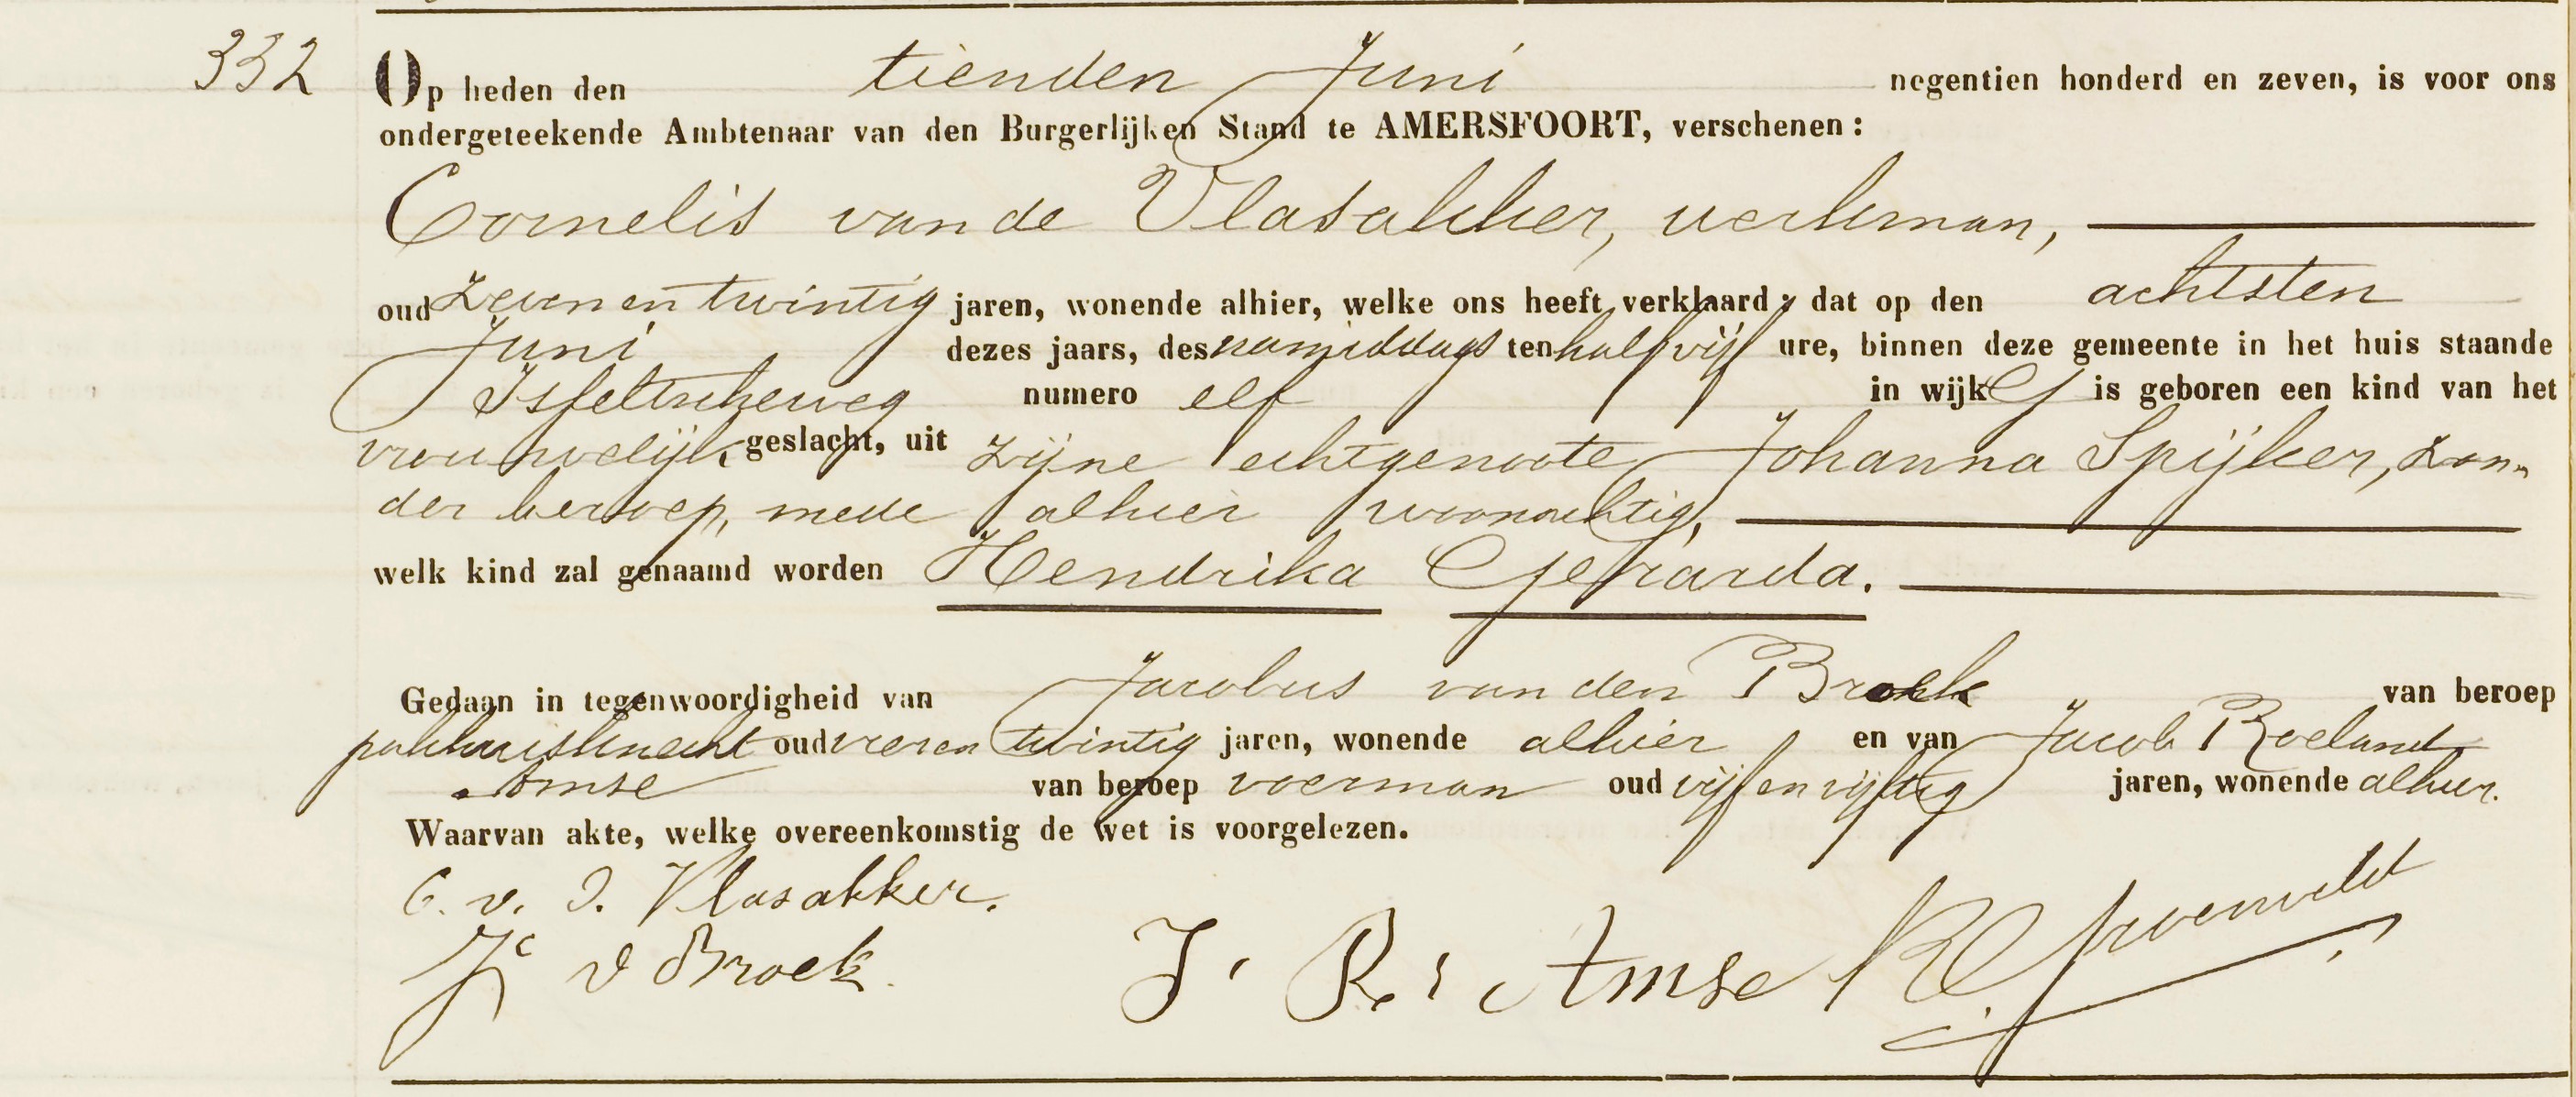 332
Op heden den tienden Juni negentien honderd en zeven, is voor ons
ondergeteekende Ambtenaar van den Burgerlijken Stand te AMERSFOORT, verschenen:
Cornelis van de Vlasakker, werkman,
oud zevenentwintig jaren, wonende alhier, welke ons heeft verklaard; dat op den achtsten
Juni dezes jaars, des namiddags ten half vijf ure, binnen deze gemeente in het huis staande
Isseltscheweg numero elf in wijk G is geboren een kind van het
vrouwelijk geslacht, uit zijne echtgenoote Johanna Spijker, zon-
der beroep, mede alhier woonachtig,
welk kind zal genaamd worden Hendrika Gerarda.
Gedaan in tegenwoordigheid van Jacobus van den Broek van beroep
pakhuisknecht oud vierentwintig jaren, wonende alhier en van Jacob Roeland
Amse van beroep voerman oud vijfenvijftig jaren, wonende alhier.
Waarvan akte, welke overeenkomstig de wet is voorgelezen.
C. v. d. Vlasakker.
Jc v Broek.
J. R. Amse